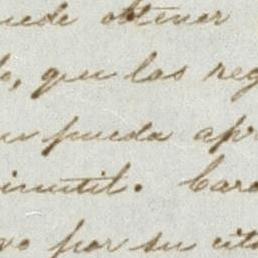 uede obtener
o, que las reg
pueda apr
inutil. Care
vo por su cita